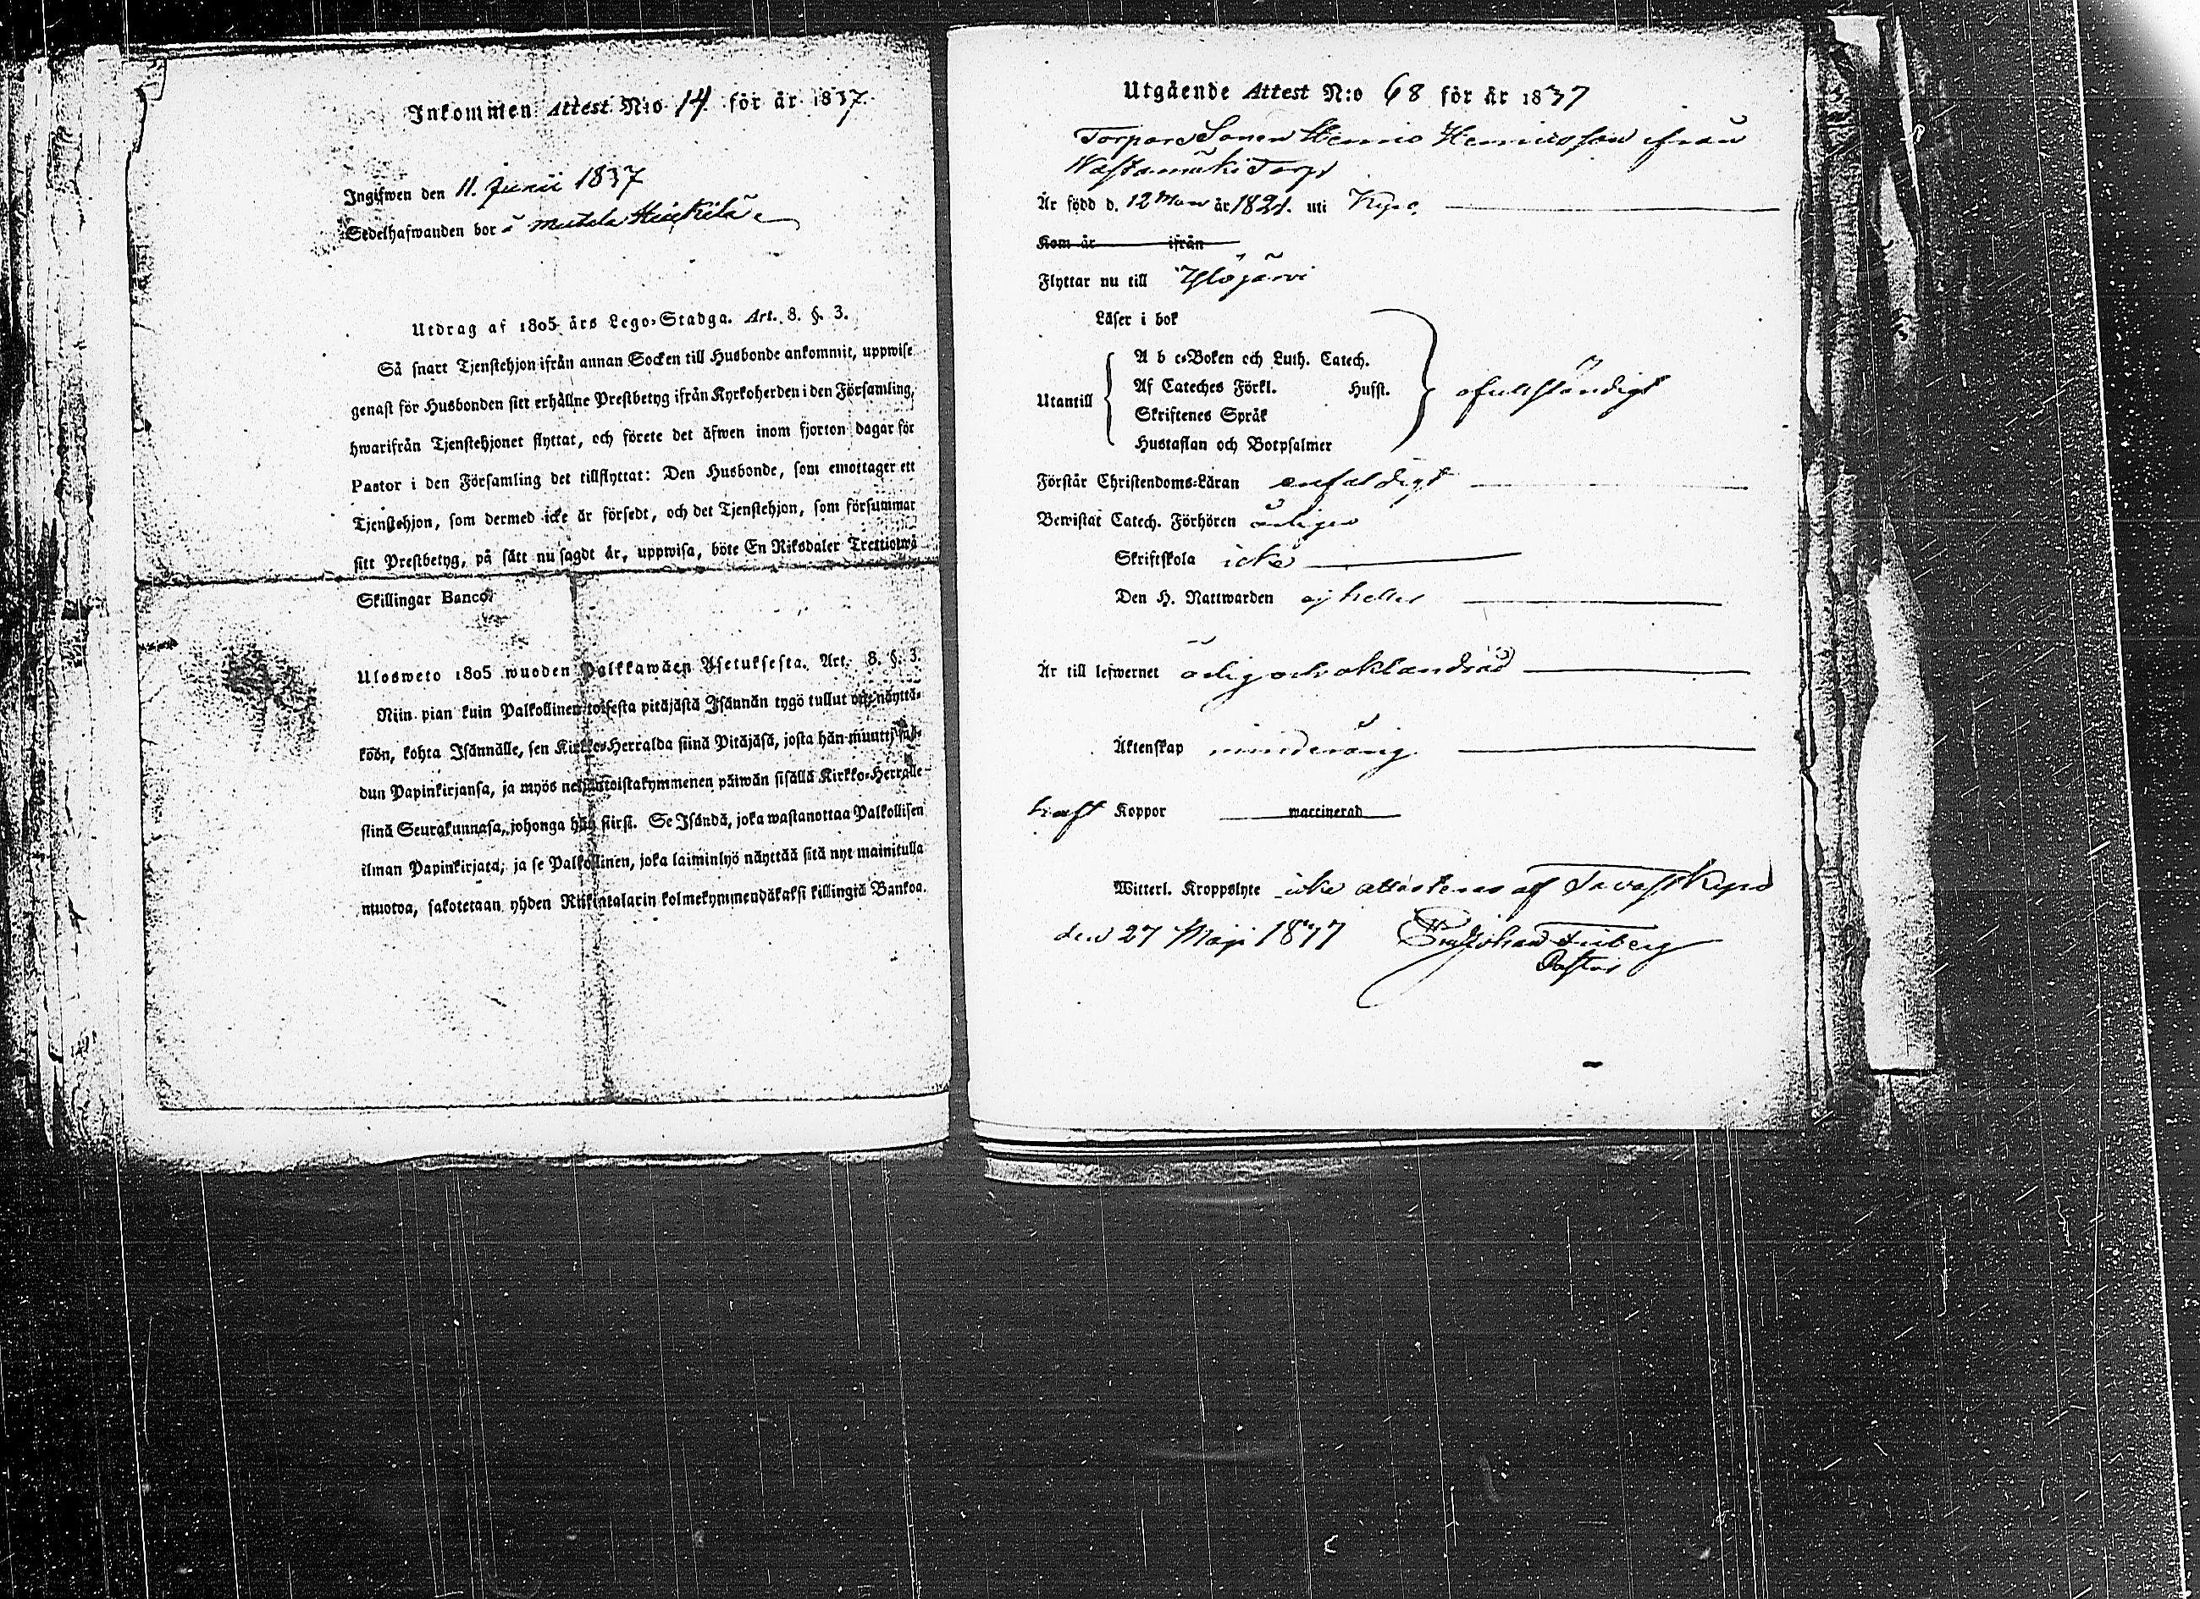 Inkommen Attest N:o 14 för år 1837.
Ingifwen den 11. Junii 1837
Sedelhafwanden bor å Mutala Heikkilä
Utdrag af 1805 års Lego-Stadga. Art. 8. §. 3.
Så snart Tjenstehjon ifrån annan Socken till Husbonde ankommit, uppwise
genast för Husbonden sitt erhållne Prestbetyg ifrån Kyrkoherden i den Församling,
hwarifrån Tjenstehjonet flyttat, och förete det äfwen inom fjorton dagar för
Pastor i den Församling det tillflyttat: Den Husbonde, som emottager ett
Tjenstehjon, som dermed icke är försedt, och det Tjenstehjon, som försummar
sitt Prestbetyg, på sätt nu sagdt är, uppwisa, böte En Riksdaler Trettiotwå
Skillingar Banco.
Ulosweto 1805 wuoden Palkkawäen Asetuksesta. Art. 8. §. 3.
Niin pian kuin Palkollinen toisesta pitäjästä Isännän tygö tullut on, näyttä-
köön, kohta Isännälle, sen Kirkko-Herralda siinä Pitäjäsä, josta hän muutti, saa-
dun Papinkirjansa, ja myös neljäntoistakymmenen päiwän sisällä Kirkko-Herralle
siinä Seurakunnasa, johonga hän siirsi. Se Isändä, joka wastanottaa Palkollisen
ilman Papinkirjata, ja se Palkollinen, joka laiminlyö näyttää sitä nyt mainitulla
muotoa, sakotetaan yhden Riikintalarin kolmekymmendäkaksi killingiä Bankoa.
Utgående Attest N:o 68 för år 1837
Torpare Sonen Henric Henricsson ifrån
Wastamäki Torp
Är född d. 12 Mars år 1821. uti Kyrö
Kom år ifrån
Flyttar nu till Ylöjärvi
Läser i bok
A b c-Boken och Luth. Catech.
Utantill Af Cateches Förkl. Hussl. ofullständigt
Skriftenes Språk
Hustaflan och Botpsalmer
Förstår Christendoms-Läran enfaldigt
Bewistat Catech. Förhören årligen
Skriftskola icke
Den H. Nattwarden ej heller
Är till lefwernet ärlig och oklandrad
Äktenskap minderårig
haft Koppor waccinerad
Witterl. Kroppslyte icke attesteras af Tavastkyrö
den 27 Maji 1837 Johan Friberg
Pastor